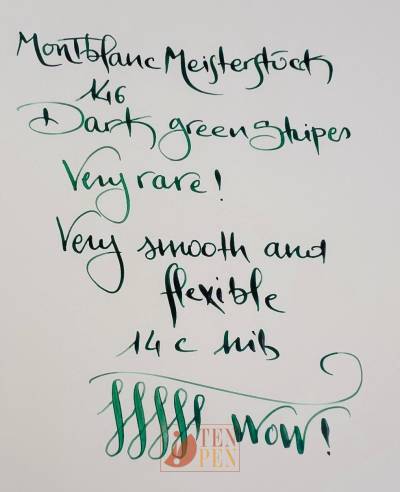 Montblanc Meisterstück
146
Dark green Stripes
Very rare!
Very smooth and
flexible
14 c nib
WOW!
TEN
PEN